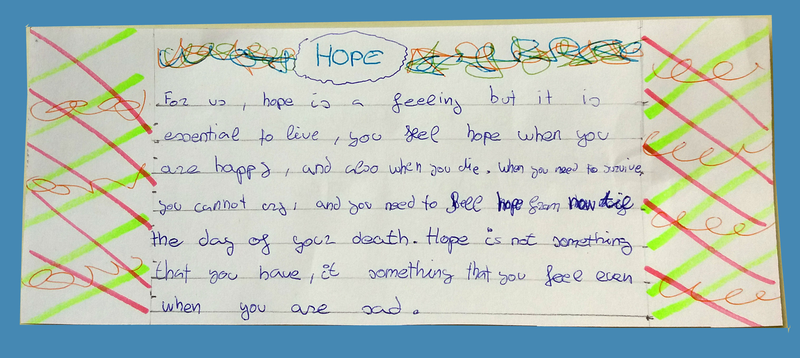 HOPE
For us, hope is a feeling but it is
essential to live, you feel hope when you
are happy, and also when you die. When you need to survive,
you cannot cry, and you need to feel hope from now til
the day of your death. Hope is not something
that you have, it something that you feel even
when you are sad.